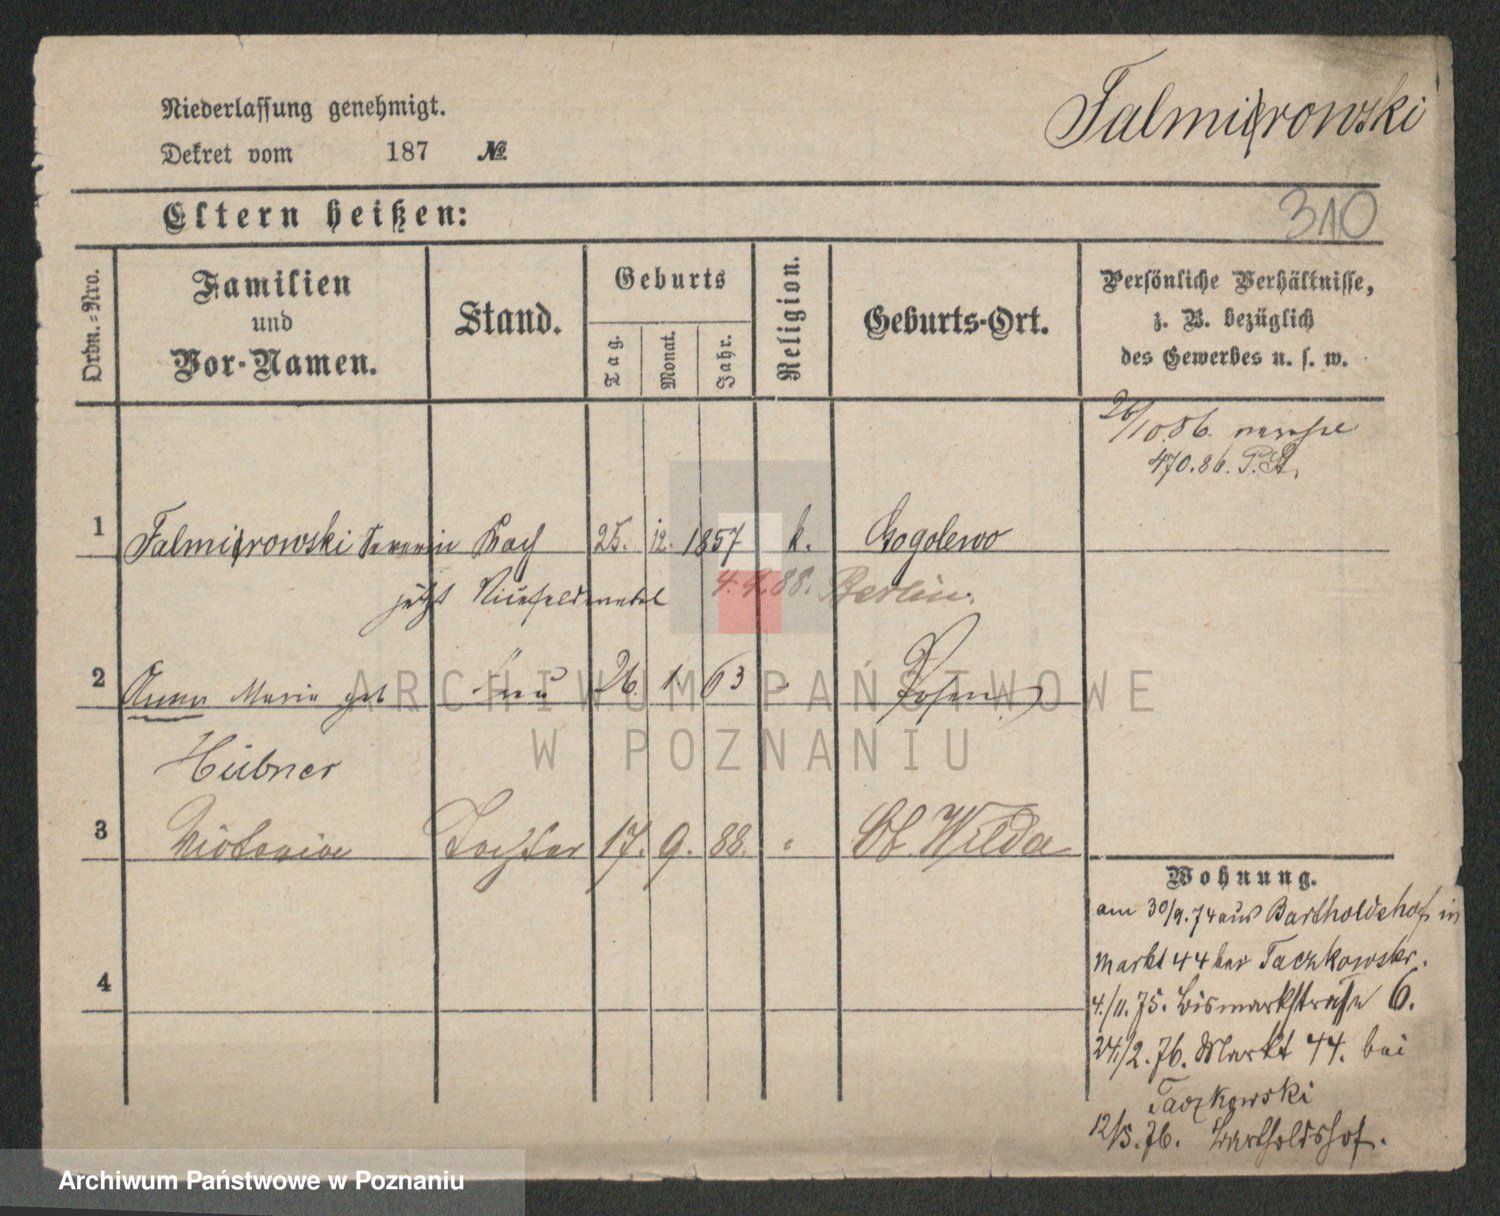 Niederlassung genehmigt.
Dekret vom 187 №
Falmirowski
Eltern heißen:
310
Ordn.-Nro.
Familien und Vor-Namen.
Stand.
Geburts
Tag.
Monat.
Jahr.
Religion.
Geburts-Ort.
Persönliche Verhältnisse,
z. B. bezüglich
des Gewerbes u. s. w.
26/10.86.
470.86. P.A.
1 Falmirowski Severin Koch 25. 12. 1857 k. Gogolewo
jetzt 4.9.88. Berlin.
2 Anna Maria geb 26. 1. 63 " Posen
Hübner
3 Viktoria Tochter 17. 9. 88. " Ob. Wilda
4
Wohnung.
am 30/9.74 aus Bartholdshof in
Markt 44 bei Taczkowski.
4./11.75. Bismarkstraße 6.
24./2.76. Markt 44. bei
Taczkowski
12/5.76. Bartholdshof.
ARCHIWUM PAŃSTWOWE
W POZNANIU
Archiwum Państwowe w Poznaniu